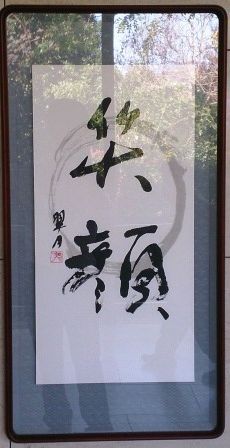 笑顔
翠月